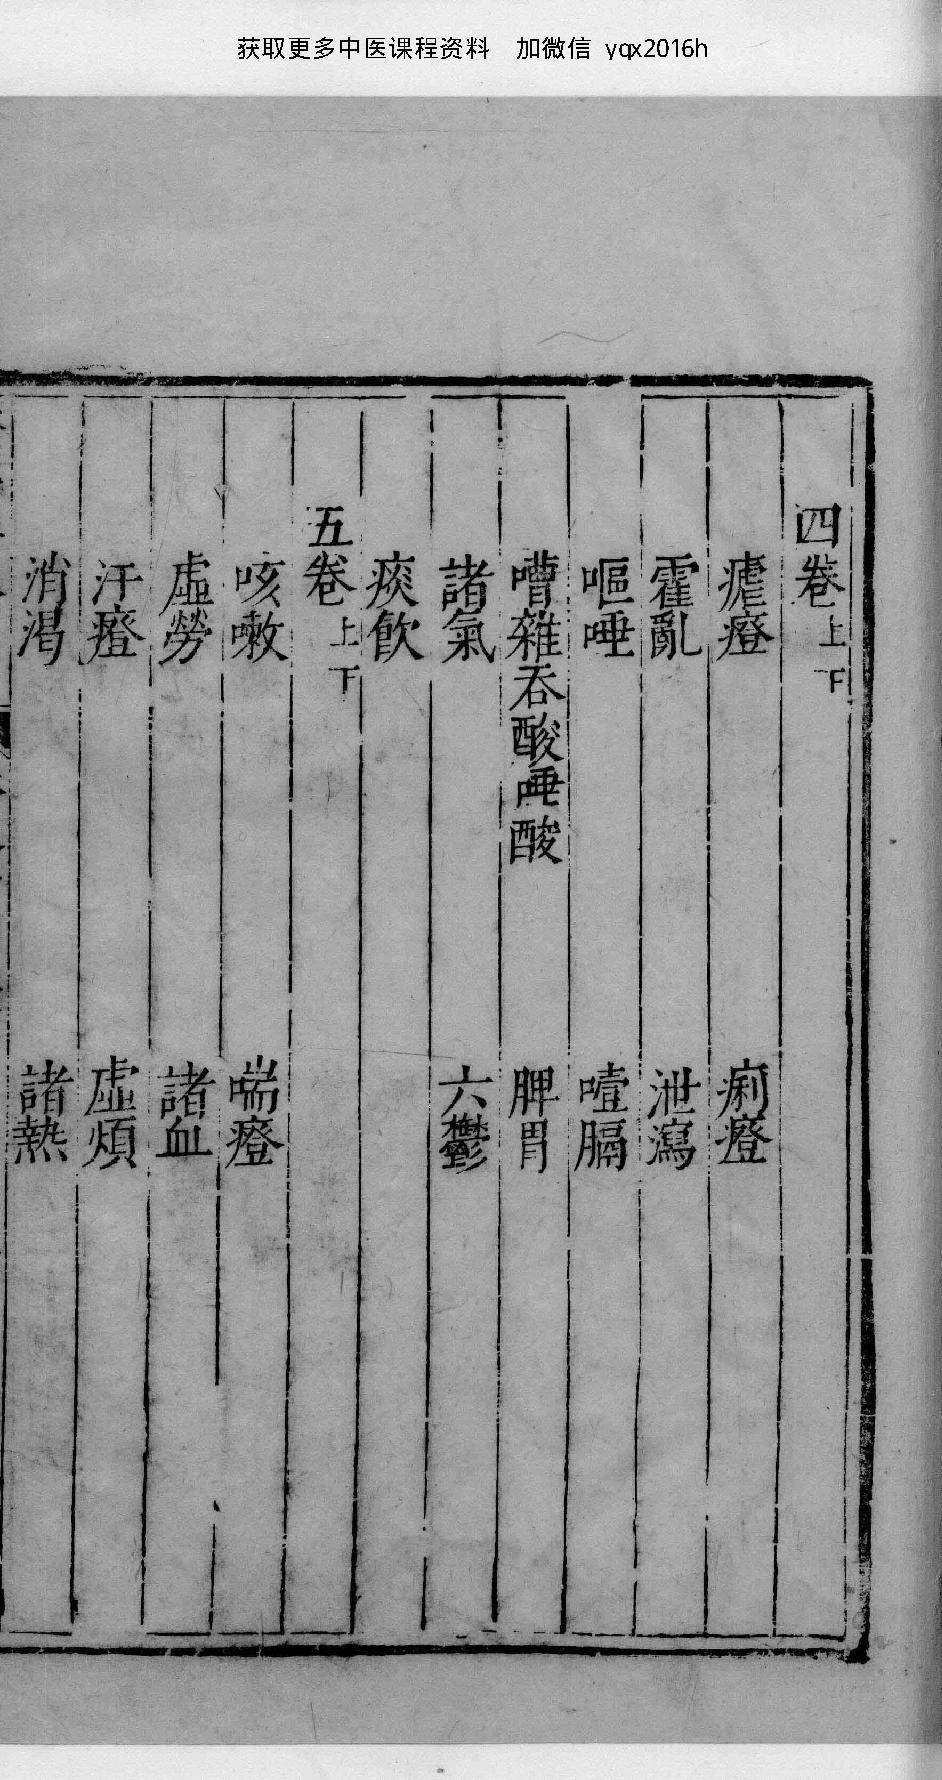 获取更多中医课程资料 加微信 yqx2016h
四卷上下
瘧癊 痢癊
霍亂 泄瀉
嘔唾 噎膈
嘈雜吞酸唾酸 脾胃
諸氣 六鬱
痰飲
五卷上下
咳嗽 喘癊
虛勞 諸血
汗癊 虛煩
消渴 諸熱